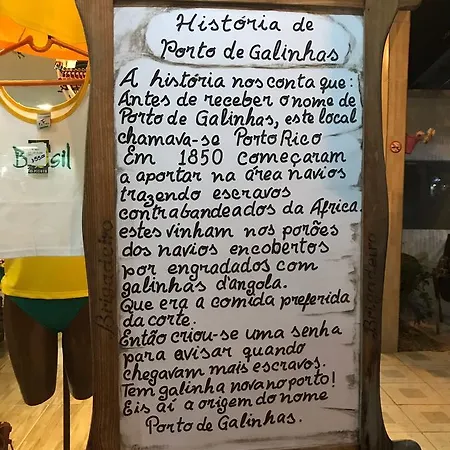 História de
Porto de Galinhas
A história nos conta que:
Antes de receber o nome de
Porto de Galinhas, este local
chamava-se Porto Rico
Em 1850 começaram
a aportar na área navios
trazendo escravos
contrabandeados da Africa.
estes vinham nos porões
dos navios encobertos
por engradados com
galinhas d'angola.
Que era a comida preferida
da corte.
Então criou-se uma senha
para avisar quando
chegavam mais escravos.
Tem galinha nova no porto!
Eis aí a origem do nome
Porto de Galinhas.